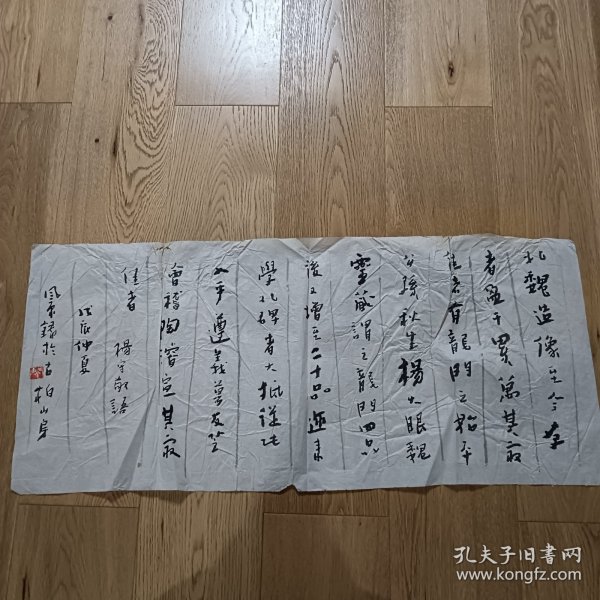 北魏造像至今存
者盈千累萬其最
佳者有龍門之始平
公孫秋生楊大眼魏
靈藏謂之龍門四品
後又增至二十品邇來
學北碑者大抵從此
入手遵義莫友芝
會稽陶濬宣其最
佳者 楊守敬語
戊辰仲夏
錄於古柏山房
孔夫子旧書网
www.kongfz.com